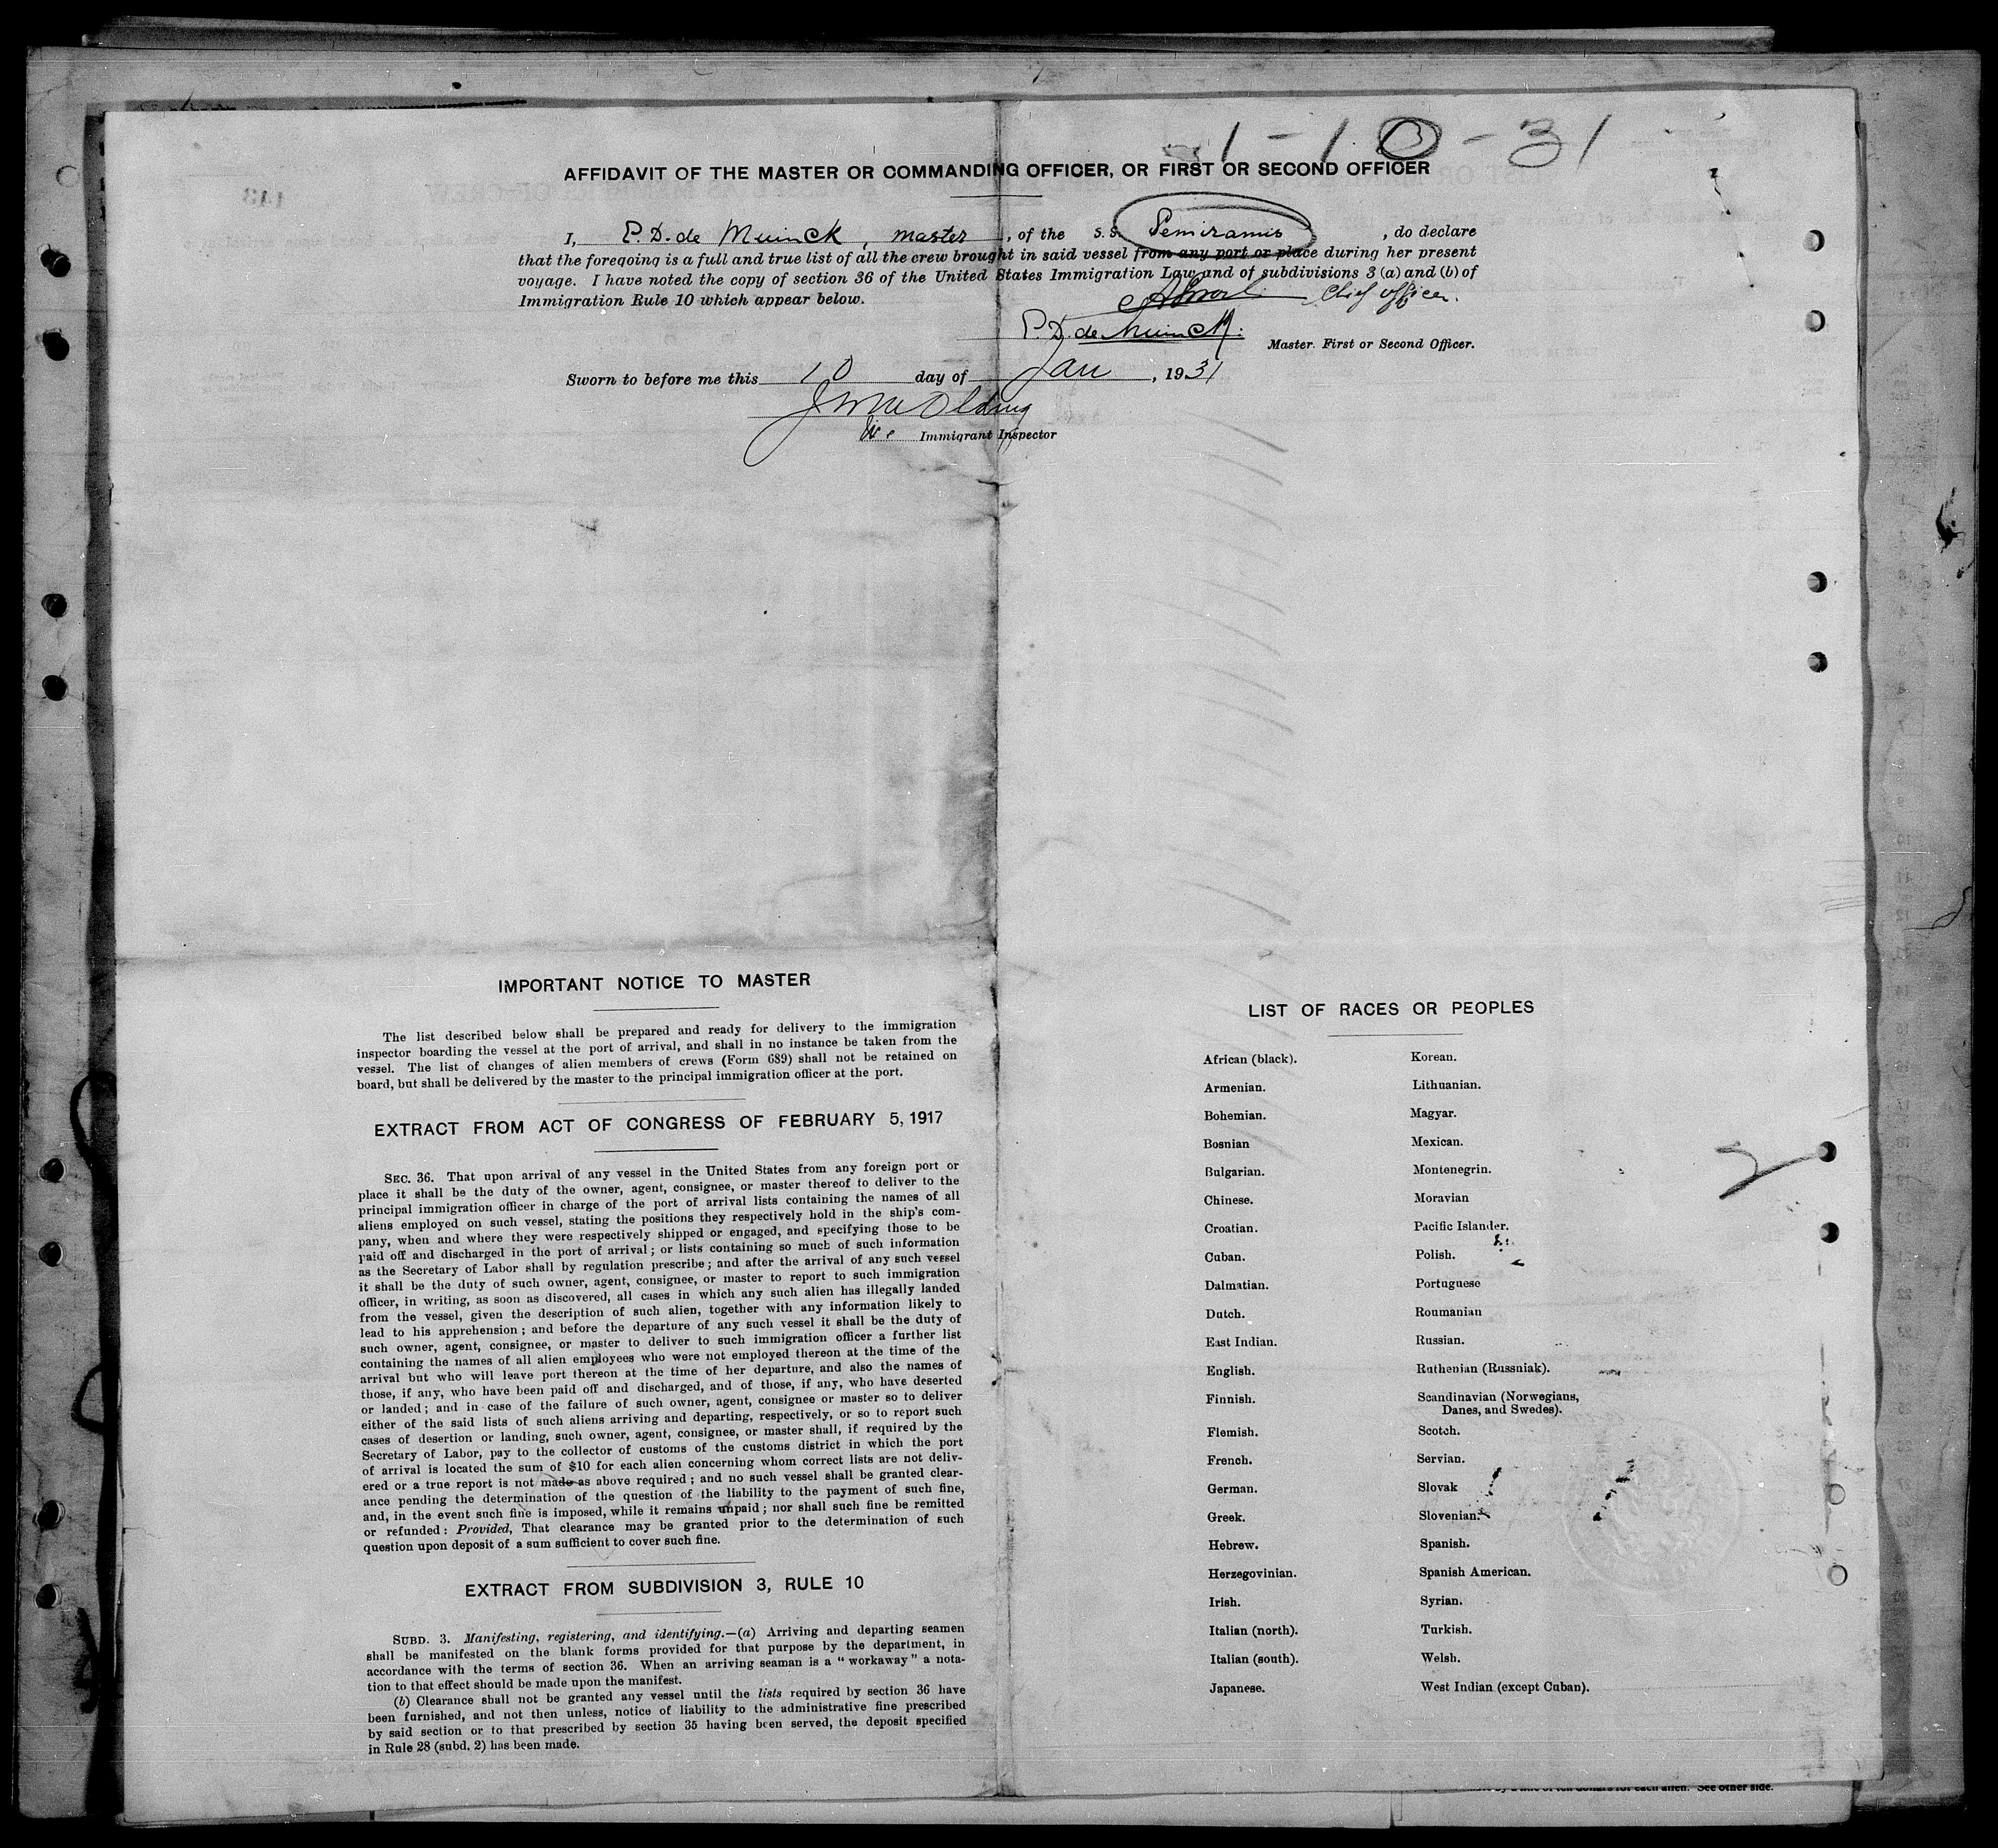 1-10-31
AFFIDAVIT OF THE MASTER OR COMMANDING OFFICER, OR FIRST OR SECOND OFFICER
I, P. D. de Muinck, master, of the S.S. Semiramis, do declare
that the foregoing is a full and true list of all the crew brought in said vessel from any port or place during her present
voyage. I have noted the copy of section 36 of the United States Immigration Law and of subdivisions 3 (a) and (b) of
Immigration Rule 10 which appear below.
Chief Officer.
P. D. de Muinck.
Master. First or Second Officer.
Sworn to before me this 10 day of Jan, 1931
Immigrant Inspector
IMPORTANT NOTICE TO MASTER
The list described below shall be prepared and ready for delivery to the immigration
inspector boarding the vessel at the port of arrival, and shall in no instance be taken from the
vessel. The list of changes of alien members of crews (Form 689) shall not be retained on
board, but shall be delivered by the master to the principal immigration officer at the port.
EXTRACT FROM ACT OF CONGRESS OF FEBRUARY 5, 1917
SEC. 36. That upon arrival of any vessel in the United States from any foreign port or
place it shall be the duty of the owner, agent, consignee, or master thereof to deliver to the
principal immigration officer in charge of the port of arrival lists containing the names of all
aliens employed on such vessel, stating the positions they respectively hold in the ship's com-
pany, when and where they were respectively shipped or engaged, and specifying those to be
paid off and discharged in the port of arrival; or lists containing so much of such information
as the Secretary of Labor shall by regulation prescribe; and after the arrival of any such vessel
it shall be the duty of such owner, agent, consignee, or master to report to such immigration
officer, in writing, as soon as discovered, all cases in which any such alien has illegally landed
from the vessel, given the description of such alien, together with any information likely to
lead to his apprehension; and before the departure of any such vessel it shall be the duty of
such owner, agent, consignee, or master to deliver to such immigration officer a further list
containing the names of all alien employees who were not employed thereon at the time of the
arrival but who will leave port thereon at the time of her departure, and also the names of
those, if any, who have been paid off and discharged, and of those, if any, who have deserted
or landed; and in case of the failure of such owner, agent, consignee or master so to deliver
either of the said lists of such aliens arriving and departing, respectively, or so to report such
cases of desertion or landing, such owner, agent, consignee, or master shall, if required by the
Secretary of Labor, pay to the collector of customs of the customs district in which the port
of arrival is located the sum of $10 for each alien concerning whom correct lists are not deliv-
ered or a true report is not made as above required; and no such vessel shall be granted clear-
ance pending the determination of the question of the liability to the payment of such fine,
and, in the event such fine is imposed, while it remains unpaid; nor shall such fine be remitted
or refunded: Provided, That clearance may be granted prior to the determination of such
question upon deposit of a sum sufficient to cover such fine.
EXTRACT FROM SUBDIVISION 3, RULE 10
SUBD. 3. Manifesting, registering, and identifying.—(a) Arriving and departing seamen
shall be manifested on the blank forms provided for that purpose by the department, in
accordance with the terms of section 36. When an arriving seaman is a "workaway" a nota-
tion to that effect should be made upon the manifest.
(b) Clearance shall not be granted any vessel until the lists required by section 36 have
been furnished, and not then unless, notice of liability to the administrative fine prescribed
by said section or to that prescribed by section 35 having been served, the deposit specified
in Rule 28 (subd. 2) has been made.
LIST OF RACES OR PEOPLES
African (black).
Armenian.
Bohemian.
Bosnian
Bulgarian.
Chinese.
Croatian.
Cuban.
Dalmatian.
Dutch.
East Indian.
English.
Finnish.
Flemish.
French.
German.
Greek.
Hebrew.
Herzegovinian.
Irish.
Italian (north).
Italian (south).
Japanese.
Korean.
Lithuanian.
Magyar.
Mexican.
Montenegrin.
Moravian
Pacific Islander.
Polish.
Portuguese
Roumanian
Russian.
Ruthenian (Russniak).
Scandinavian (Norwegians,
Danes, and Swedes).
Scotch.
Servian.
Slovak
Slovenian.
Spanish.
Spanish American.
Syrian.
Turkish.
Welsh.
West Indian (except Cuban).
See other side.